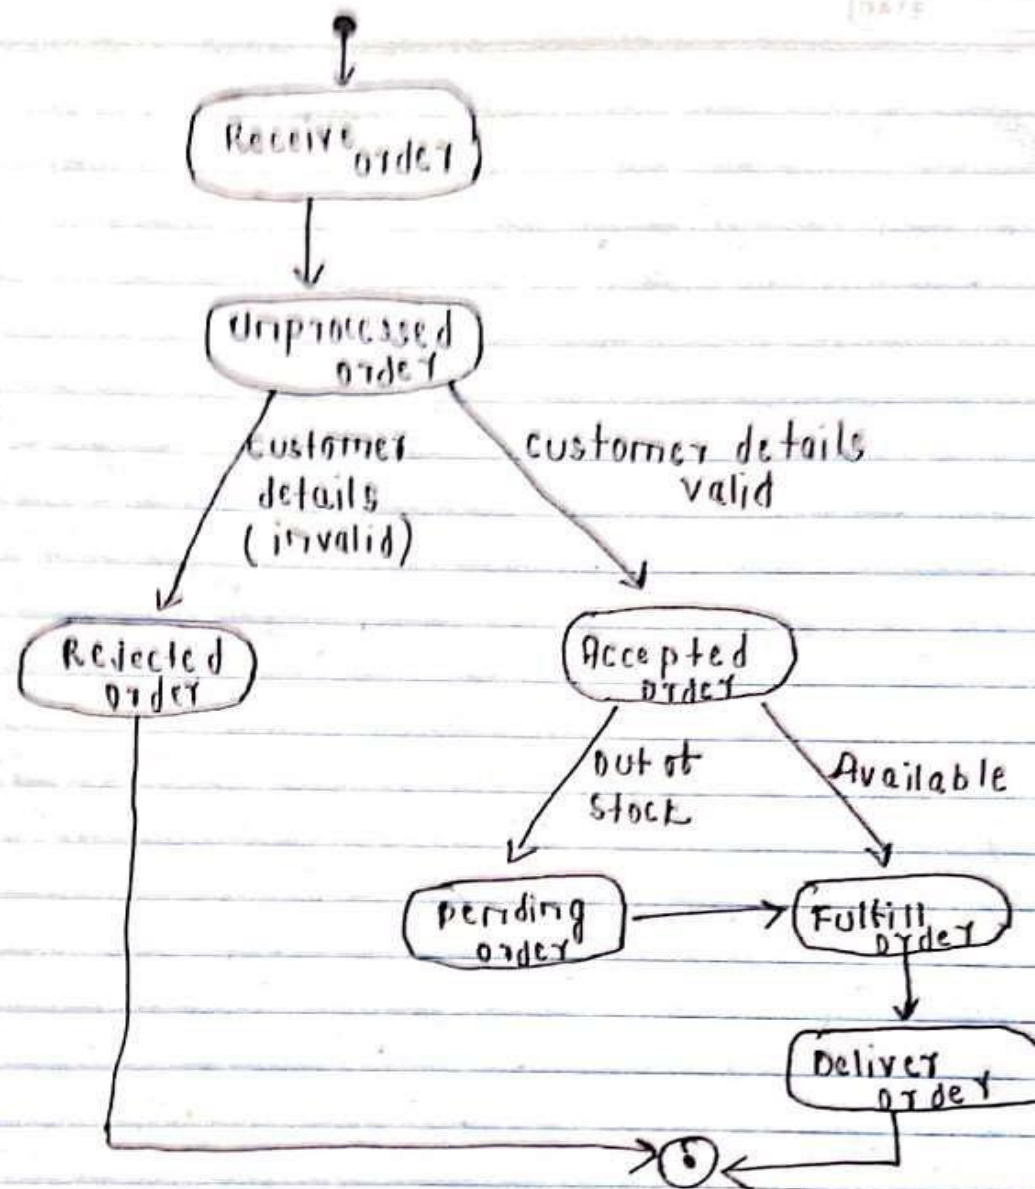 Receive
order
Unprocessed
order
customer
details
(invalid)
customer details
valid
Rejected
order
Accepted
order
out of
stock
Available
pending
order
Fulfill
order
Deliver
order